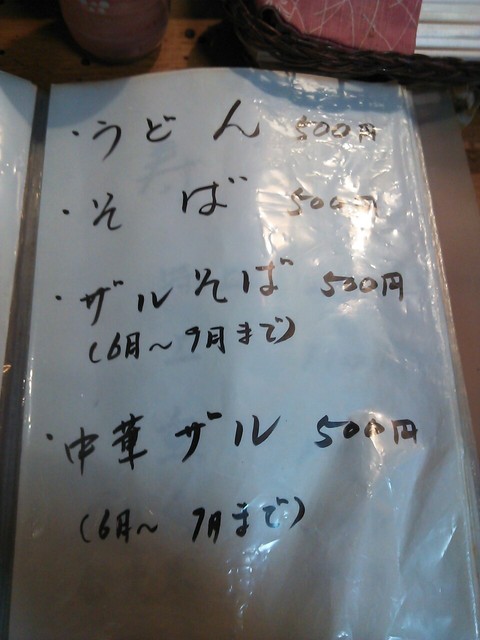 ・うどん 500円
・そば 500円
・ザルそば 500円
(6月～9月まで)
・中華ザル 500円
(6月～9月まで)